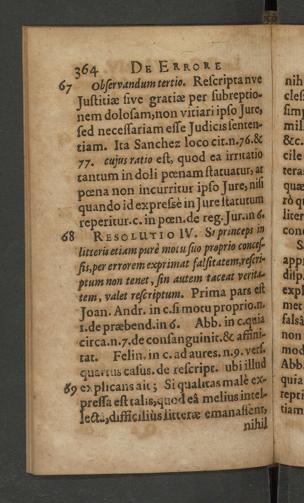 364 DE ERRORE
67 Observandum tertio. Rescripta nve
Justitiæ sive gratiæ per subreptio-
nem dolosam, non vitiari ipso Jure,
sed necessariam esse Judicis senten-
tiam. Ita Sanchez loco cit. n.76. &
77. cujus ratio est, quod ea irritatio
tantum in doli pœnam statuatur, at
pœna non incurritur ipso Jure, nisi
quando id expressè in Jure statutum
reperitur. c. in pœn. de reg. Jur. in 6.
68 RESOLUTIO IV. Si princeps in
litteris etiam purè motu suo proprio conces-
sis, per errorem exprimat falsitatem, rescri-
ptum non tenet, sin autem taceat verita-
tem, valet rescriptum. Prima pars est
Joan. Andr. in c. si motu proprio. n.
1. de præbend. in 6. Abb. in c. quia
circa. n.7. de consanguinit. & affini-
tat. Felin. in c. ad aures. n.9. vers.
quartus casus. de rescript. ubi illud
69 explicans ait; Si qualitas malè ex-
pressa est talis, quod eâ melius intel-
lectâ, difficilius litteræ emanassent,
nihil
nih
cles
simp
mil
&c.
cile
teras
quæ
rò q
liter
con
S
app
disp.
expl
met
falsâ
non
mod
Abb.
quia
repti
tiam